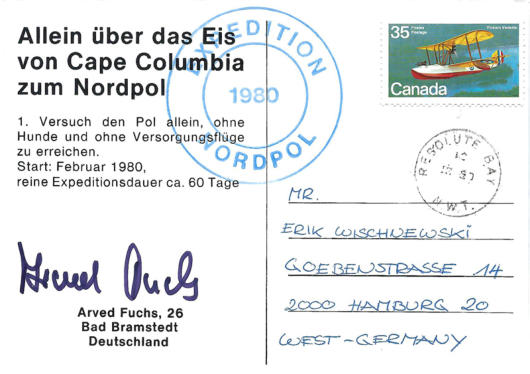 Allein über das Eis
von Cape Columbia
zum Nordpol
1. Versuch den Pol allein, ohne
Hunde und ohne Versorgungsflüge
zu erreichen.
Start: Februar 1980,
reine Expeditionsdauer ca. 60 Tage
Arved Fuchs
Arved Fuchs, 26
Bad Bramstedt
Deutschland
EXPEDITION
1980
NORDPOL
35 Postes
Postage
Canada
RESOLUTE BAY
N.W.T.
MR.
ERIK WISCHNEWSKI
GOEBENSTRASSE 14
2000 HAMBURG 20
WEST-GERMANY